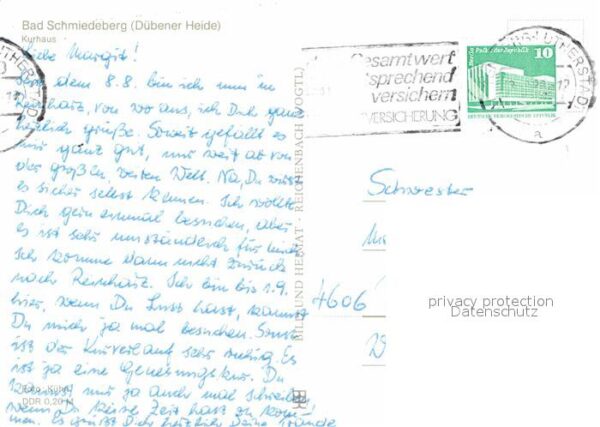 Bad Schmiedeberg (Dübener Heide)
Kurhaus
Liebe Margit!
Seit dem 8.8. bin ich nun in
Reinharz, von wo aus, ich Dich ganz
herzlich grüße. Soweit gefällt es
mir ganz gut, nur weit ab von
der großen, weiten Welt. Na, Du wirst
es sicher selbst kennen. Ich wollte
Dich gern einmal besuchen, aber
es ist sehr umständlich für mich
Ich komme dann nicht zurück
nach Reinharz. Ich bin bis 1.9.
hier, wenn Du Lust hast, kannst
Du mich ja mal besuchen. Sonst
ist der Kurverlauf sehr ruhig. Es
ist ja eine Genehungskur. Du
kannst mir ja auch mal schreiben
wenn Du keine Zeit hast zu kom-
men. Es grüßt Dich herzlich Deine
Foto: Kühn
DDR 0,20 M
BILD UND HEIMAT · REICHENBACH (VOGTL)
Gesamtwert
sprechend
versichern
VERSICHERUNG
Berlin Palast der Republik
10
DEUTSCHE DEMOKRATISCHE REPUBLIK
LUTHERSTADT
a
Schwester
4606
privacy protection
Datenschutz